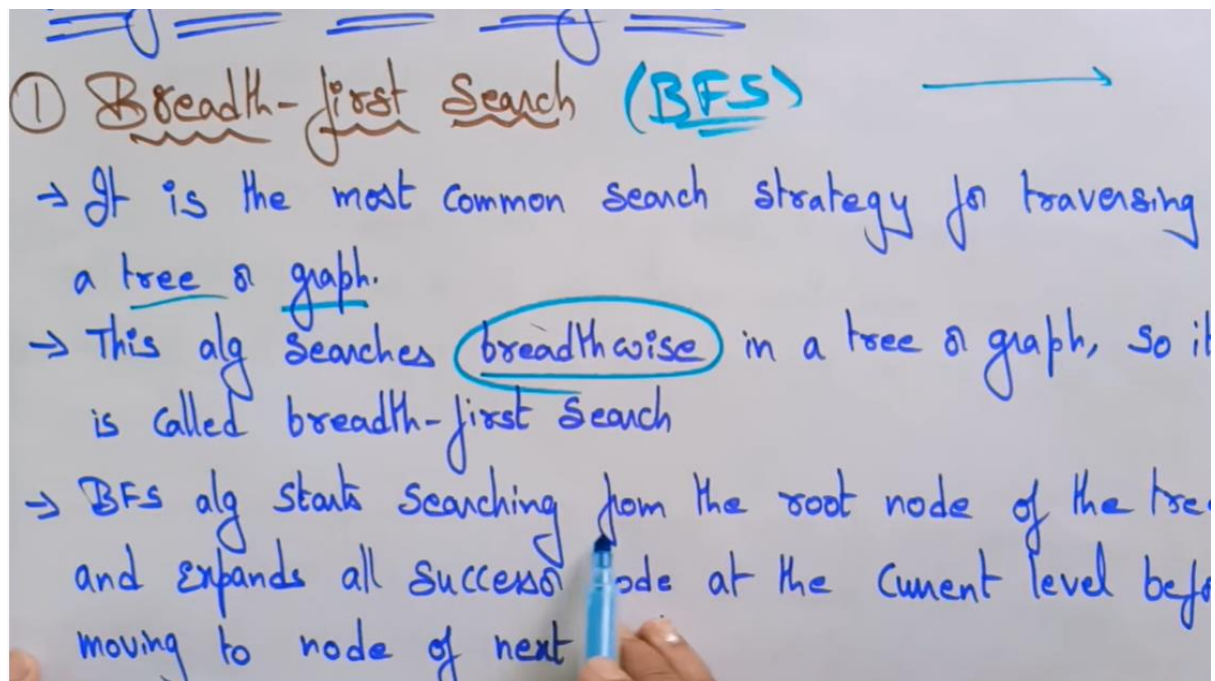 ① Breadth-first Search (BFS) →
→ It is the most common search strategy for traversing
a tree or graph.
→ This alg searches breadthwise in a tree or graph, so it
is called breadth-first search
→ BFS alg starts searching from the root node of the
and expands all successor at the current level
moving to node of next